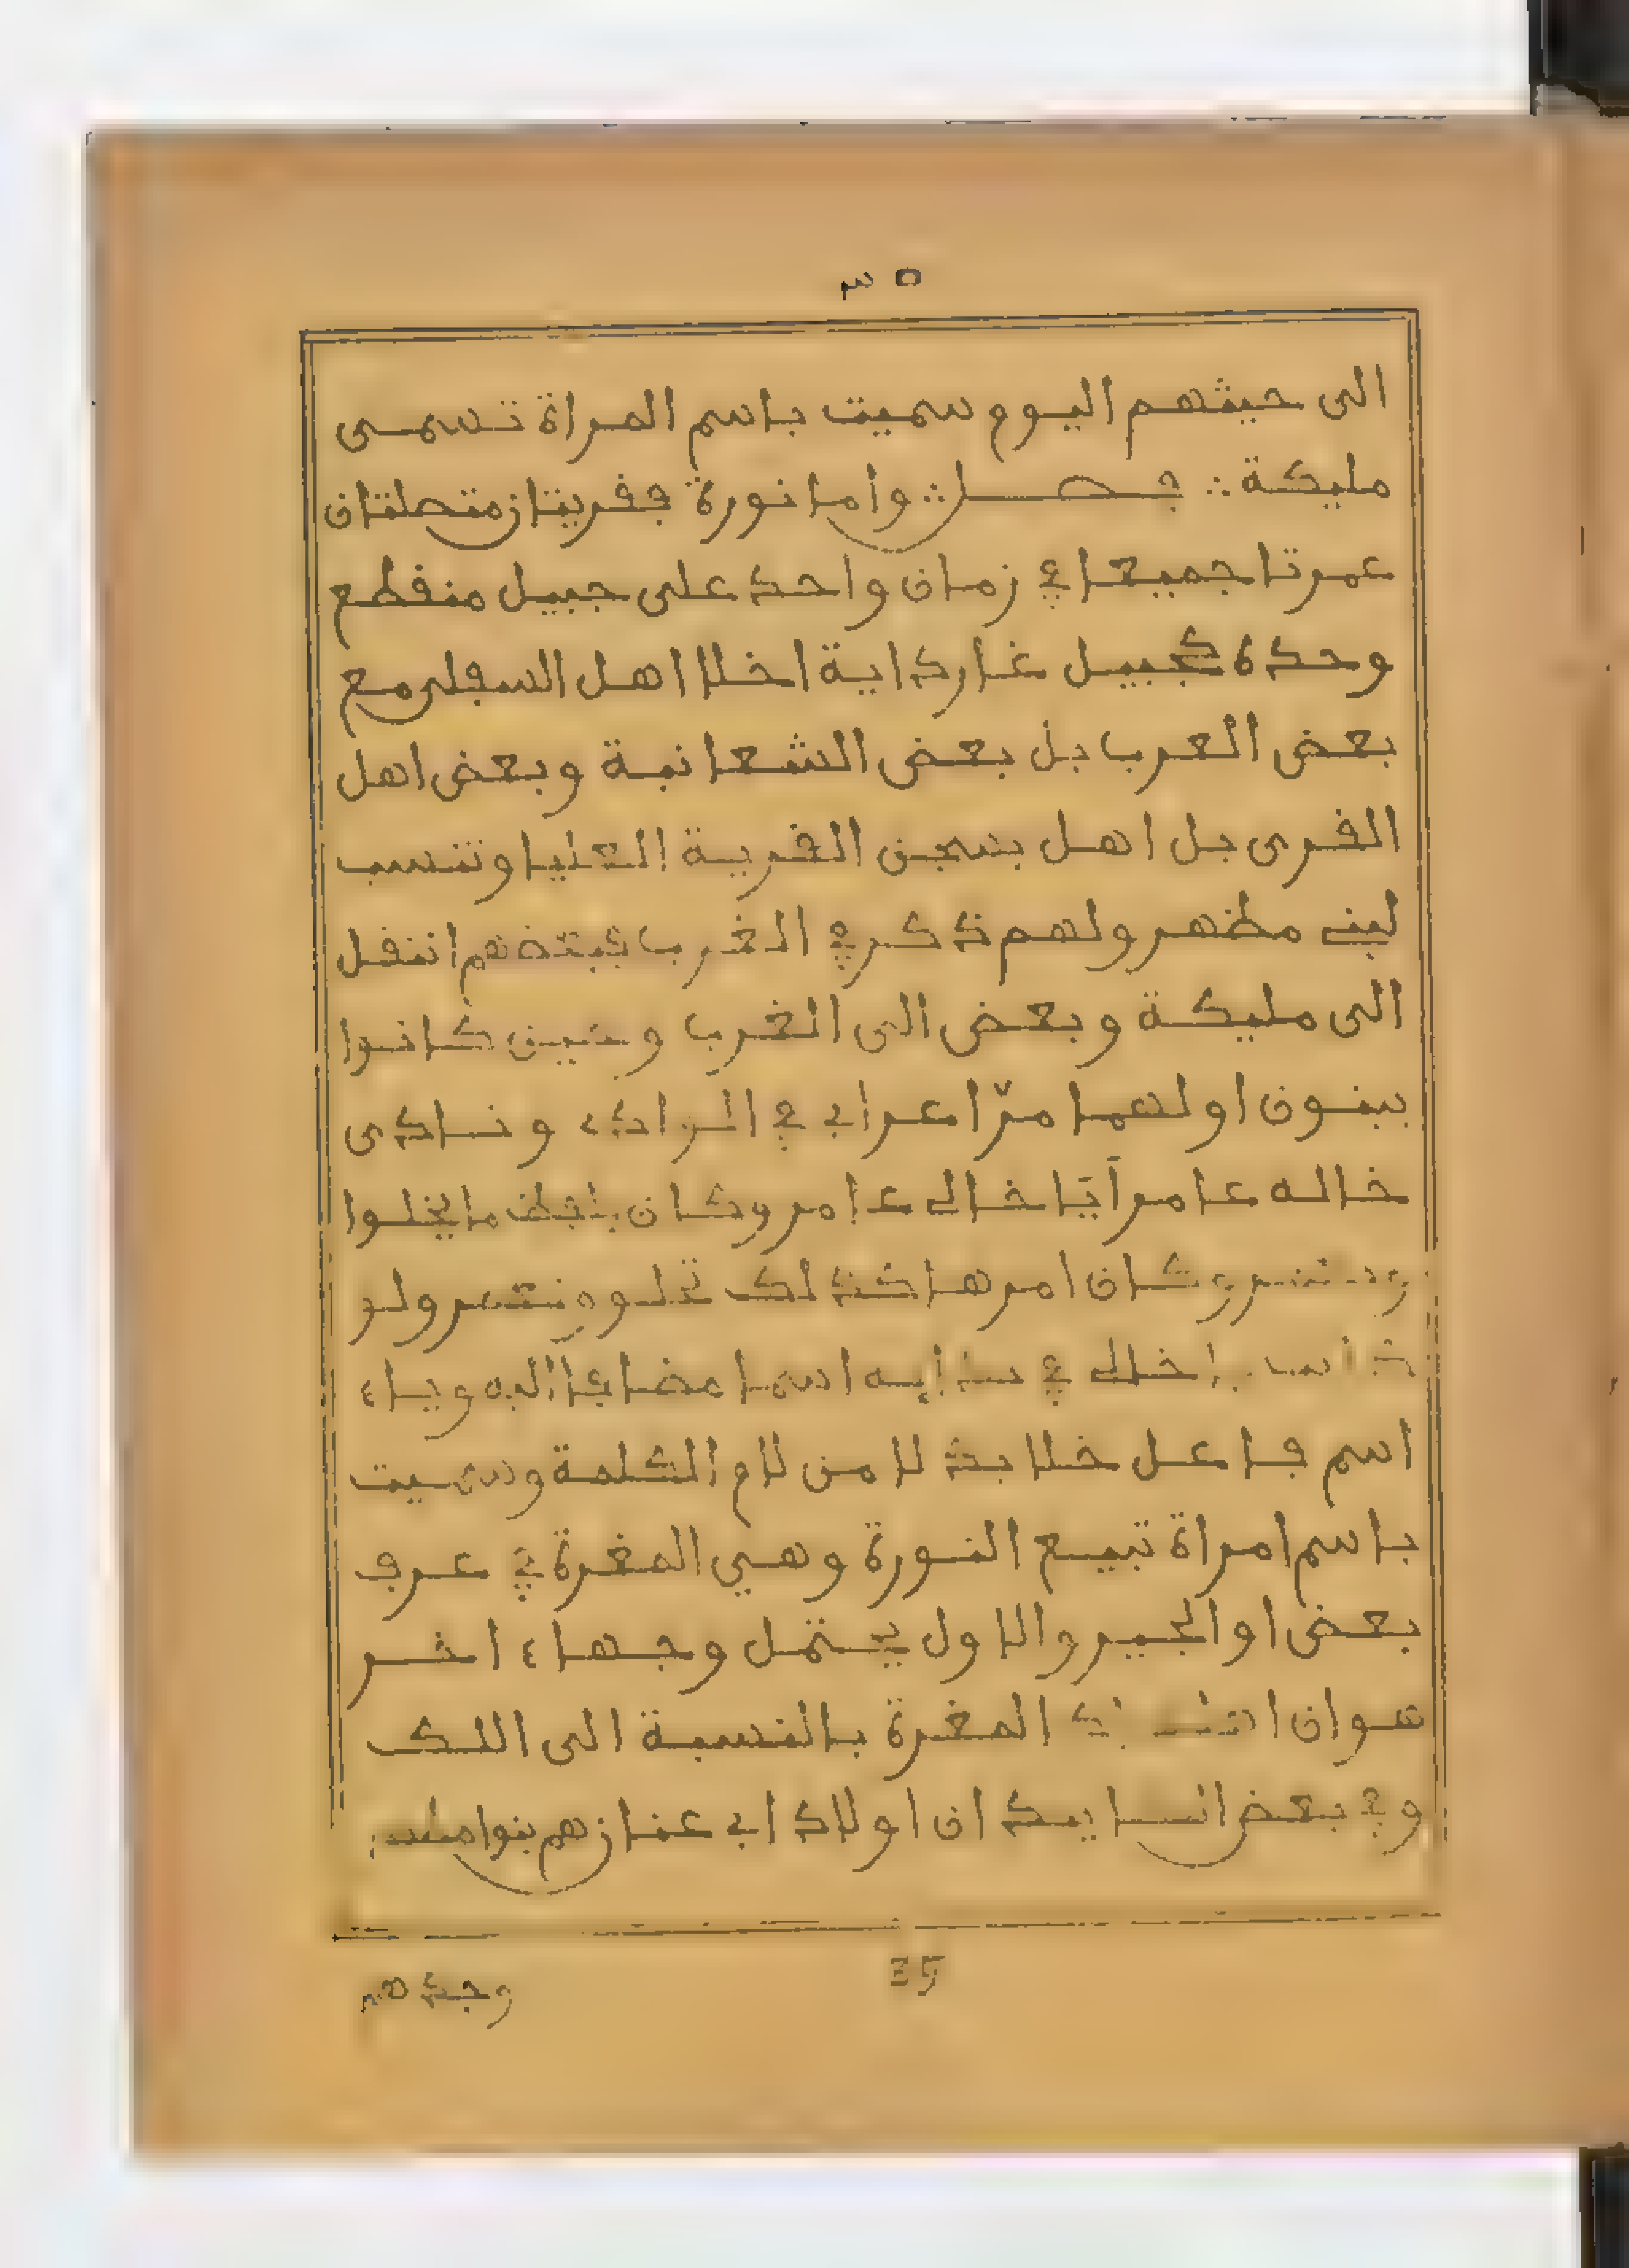 ٣٥
الى حيثهم اليوم سميت باسم المراة تسمى
مليكة ∴ فصل ∴ واما نورة فقريتان متصلتان
عمرتا جميعا في زمان واحد على جبيل منقطع
وحده كجبيل غارداية اخلا اهل السفلى مع
بعض العرب بل بعض الشعانبة وبعض اهل
القرى بل اهل يسجن القرية العليا وتنسب
لبني مظهر ولهم ذكر في الغرب فبعضهم انتقل
الى مليكة وبعض الى الغرب وحين كانوا
يبنون اولهما مرّ اعرابي في الوادي ونادى
خاله عامر أيا خالي عامر وكان
وكان امرها كذلك تخلو وتعمر ولو
خالي في اسما مضافا اليه وياء
اسم فاعل خلا بدلا من لام الكلمة وسميت
باسم امراة تبيع النورة وهي المغرة في عرف
بعض او الجير والاول يحتمل وجهاء اخر
هو ان المغرة بالنسبة الى اللك
وفي بعض اسايد ان اولاد ابي عنان هم بنوا
35
وجدهم